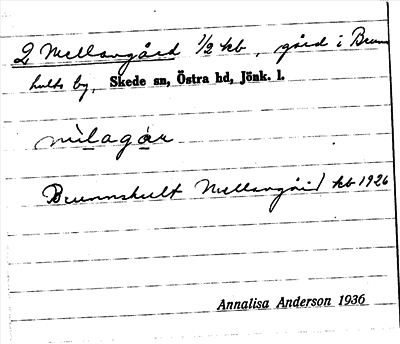 2 Mellangård 1/2 kb, gård i Brunns
hults by, Skede sn, Östra hd, Jönk. l.
mìlagàṇ
Brunnshult Mellangård kb 1926
Annalisa Anderson 1936